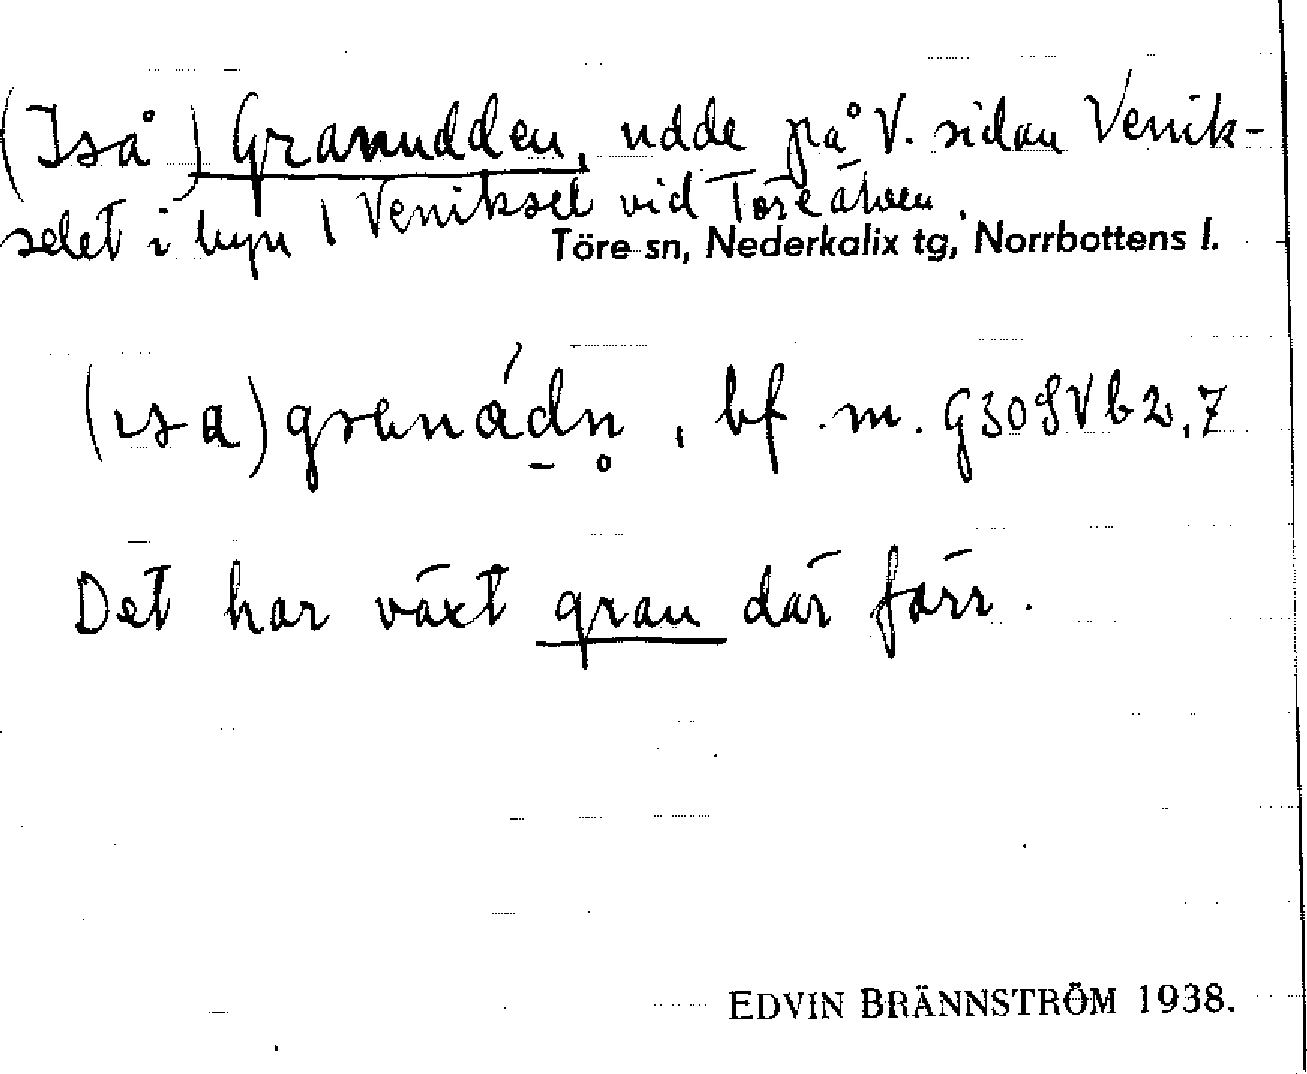 (Iså) Granudden, udde på V. sidan Venik-
selet i byn Veniksel vid Töreälven.
Töre sn, Nederkalix tg, Norrbottens l.
(ısa) granádn̥, bf. m. G309Vb2,7
Det har växt gran där förr.
EDVIN BRÄNNSTRÖM 1938.